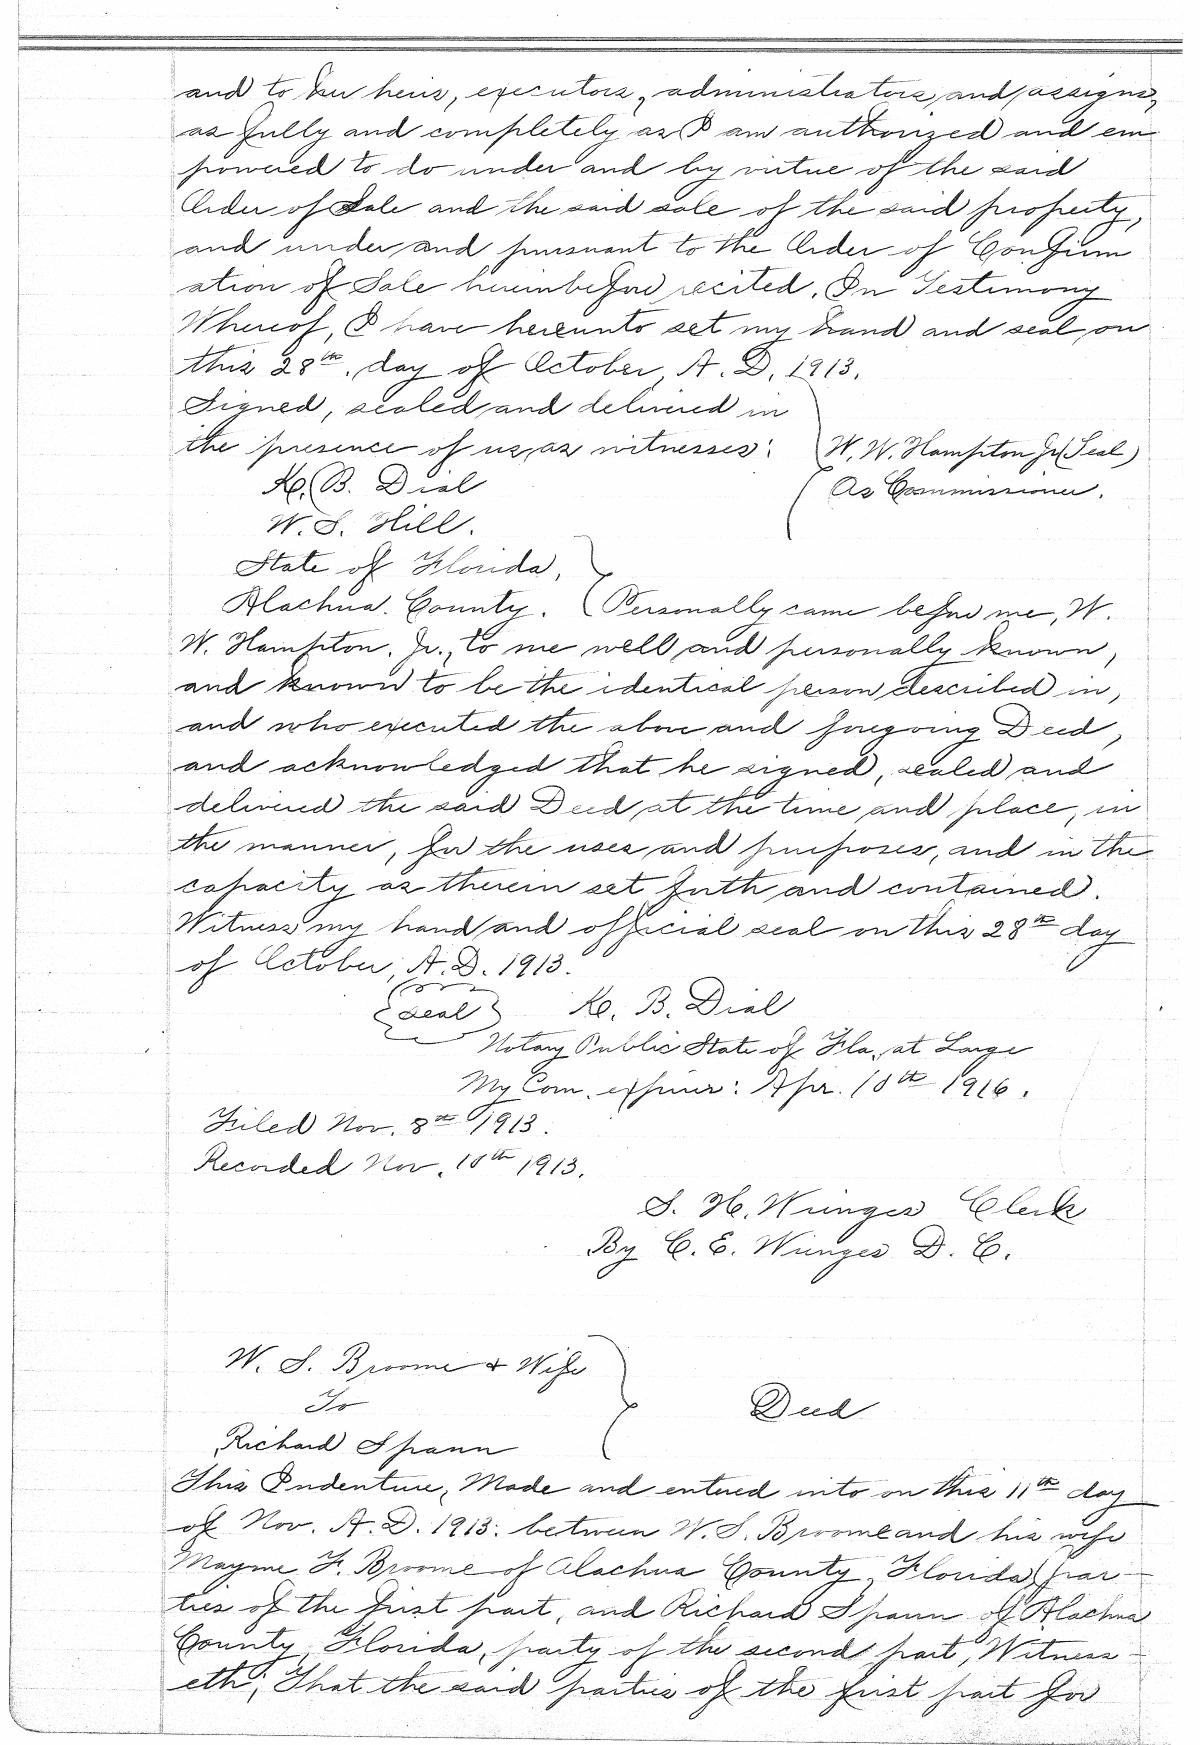 and to her heirs, executors, administrators and assigns,
as fully and completely as I am authorized and em
powered to do under and by virtue of the said
Order of Sale and the said sale of the said property,
and under and pursuant to the Order of Confirm
ation of Sale hereinbefore recited. In Testimony
Whereof, I have hereunto set my hand and seal on
this 28th. day of October, A. D. 1913.
Signed, sealed and delivered in
the presence of us, as witnesses: W. W. Hampton Jr (Seal)
K. B. Dial As Commissioner.
W. S. Hill.
State of Florida,
Alachua County. Personally came before me, W.
W. Hampton. Jr., to me well and personally known,
and known to be the identical person described in,
and who executed the above and foregoing Deed,
and acknowledged that he signed, sealed and
delivered the said Deed at the time and place, in
the manner, for the uses and purposes, and in the
capacity as therein set forth and contained.
Witness my hand and official seal on this 28th day
of October, A. D. 1913.
(seal) K. B. Dial
Notary Public State of Fla. at Large
My Com. expires: Apr. 10th 1916.
Filed Nov. 8th 1913.
Recorded Nov. 10th 1913.
S. H. Wienges Clerk
By C. E. Wienges D. C.
W. S. Broome & Wife
To Deed
Richard Spann
This Indenture, Made and entered into on this 11th day
of Nov. A. D. 1913. between W. S. Broome and his wife
Mayme F. Broome of Alachua County, Florida, par-
ties of the first part, and Richard Spann of Alachua
County, Florida, party of the second part, Witness-
eth; That the said parties of the first part for